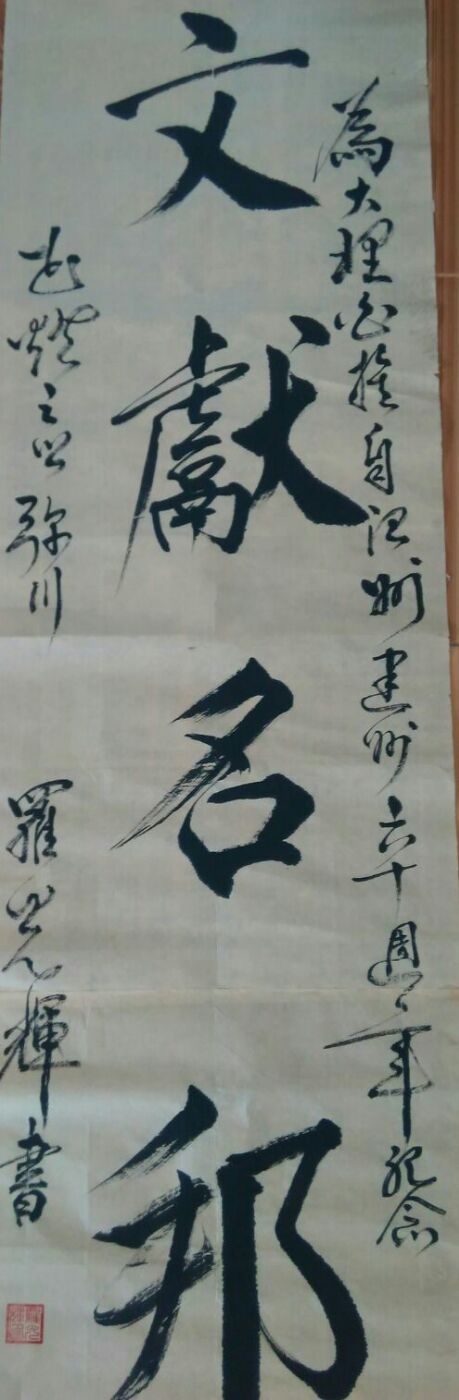 為大理白族自治州建州六十週年紀念
文獻名邦
之弥川
羅光輝書